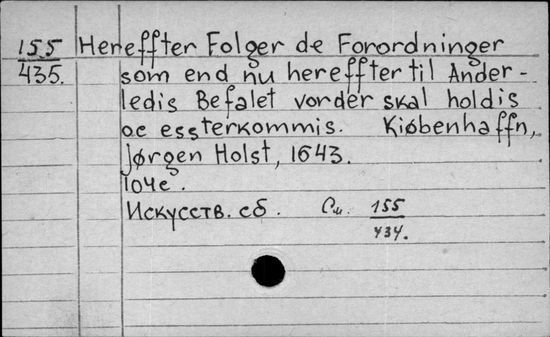 155 Hereffter Folger de Forordninger
435. som end nu hereffter til Ander-
ledis Befalet vorder skal holdis
oc essterkommis. Kiøbenhaffn,
Jørgen Holst, 1643.
104 c.
Искусств. сб. См. 155
434.